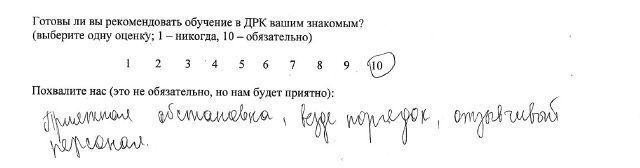 Готовы ли вы рекомендовать обучение в ДРК вашим знакомым?
(выберите одну оценку; 1 – никогда, 10 – обязательно)
1 2 3 4 5 6 7 8 9 10
Похвалите нас (это не обязательно, но нам будет приятно):
Приятная обстановка, везде порядок, отзывчивый
персонал.